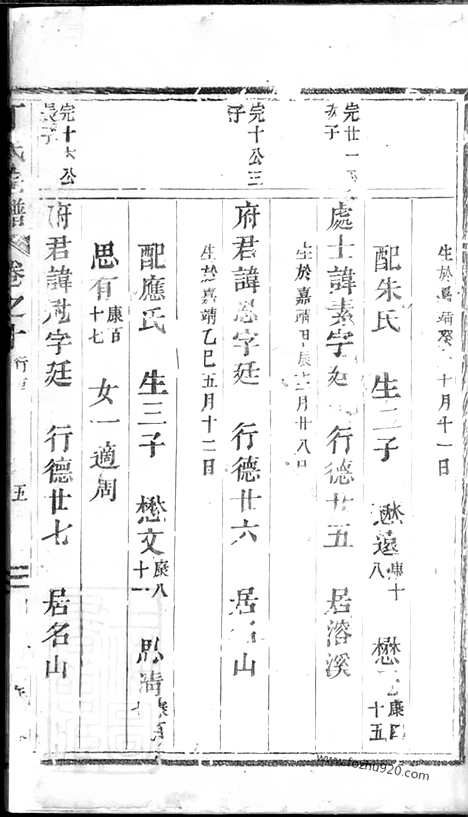 生於嘉靖癸 十月十一日
配朱氏 生二子 懋遠 康十八 懋 康 十五
完廿一 子
處士諱素字廷 行德廿五 居溶溪
生於嘉靖甲辰 月廿八日
完十公三子
府君諱 字廷 行德廿六 居 山
生於嘉靖乙巳五月十二日
配應氏 生三子 懋文 康八十一 思清
思有 康百十七 女一適周
完十六公 子
府君諱 字廷 行德廿七 居名山
丁氏宗譜 卷之十 行 五
www.fozhu920.com